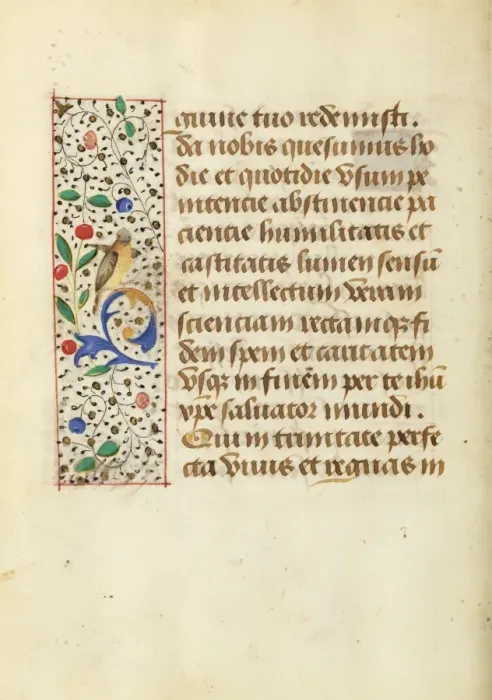 guine tuo redemisti.
da nobis quesumus ho
die et quotidie vsum pe
nitencie abstinencie pa
ciencie humilitatis et
castitatis lumen sensū
et intellectum veram
scienciam rectamqꝫ fi
dem spem et caritatem
vsqꝫ in finem per te ihū
xp̄e saluator mundi.
Qui in trinitate perfe
cta viuis et regnas in